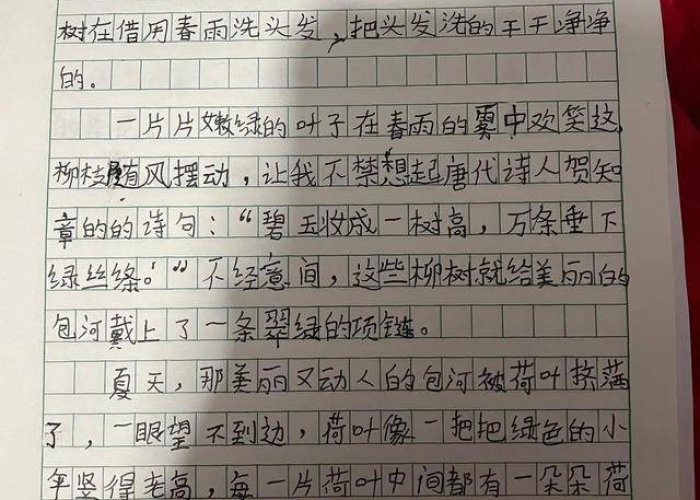 树在借用春雨洗头发,把头发洗的干干净净
的。
一片片嫩绿的叶子在春雨的雾中欢笑这,
柳枝随有风摆动,让我不禁想起唐代诗人贺知
章的的诗句:“碧玉妆成一树高,万条垂下
绿丝绦。”不经意间,这些柳树就给美丽的
包河戴上了一条翠绿的项链。
夏天,那美丽又动人的包河被荷叶挤满
了,一眼望不到边,荷叶像一把把绿色的小
伞竖得老高,每一片荷叶中间都有一朵朵荷